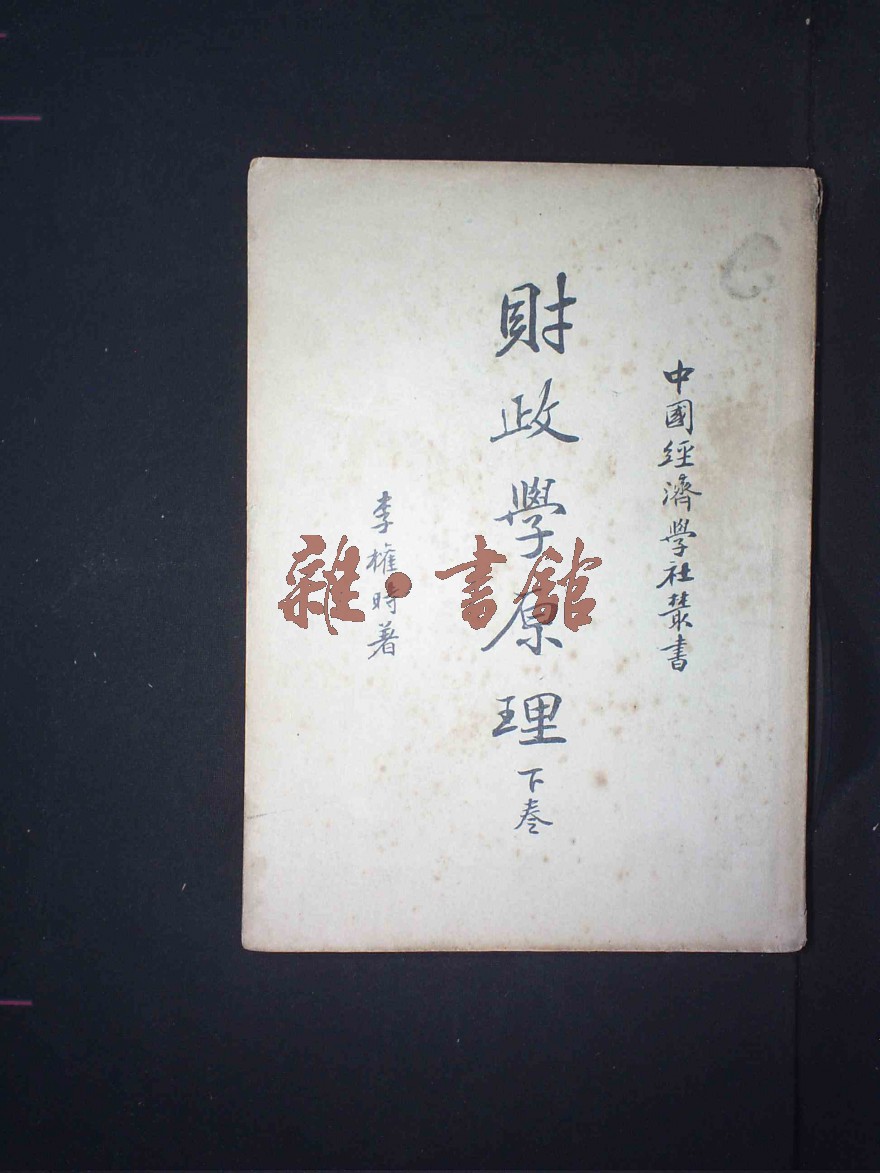 中國經濟學社叢書
財政學原理
下卷
李權時著
雜·書館